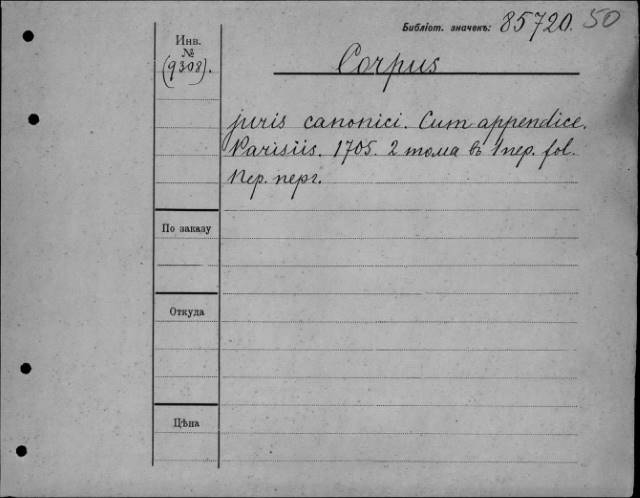 Библіот. значекъ: 85720. 50
Инв.
№
(9308).
Corpus
juris canonici. Cum appendice.
Parisiis. 1705. 2 тома въ 1 пер. fol.
Пер. перг.
По заказу
Откуда
Цѣна